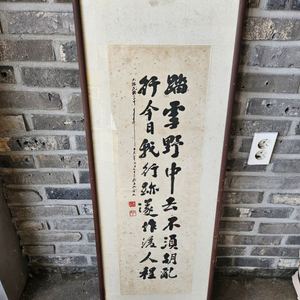 踏雪野中去不須胡亂
行今日我行跡遂作後人程